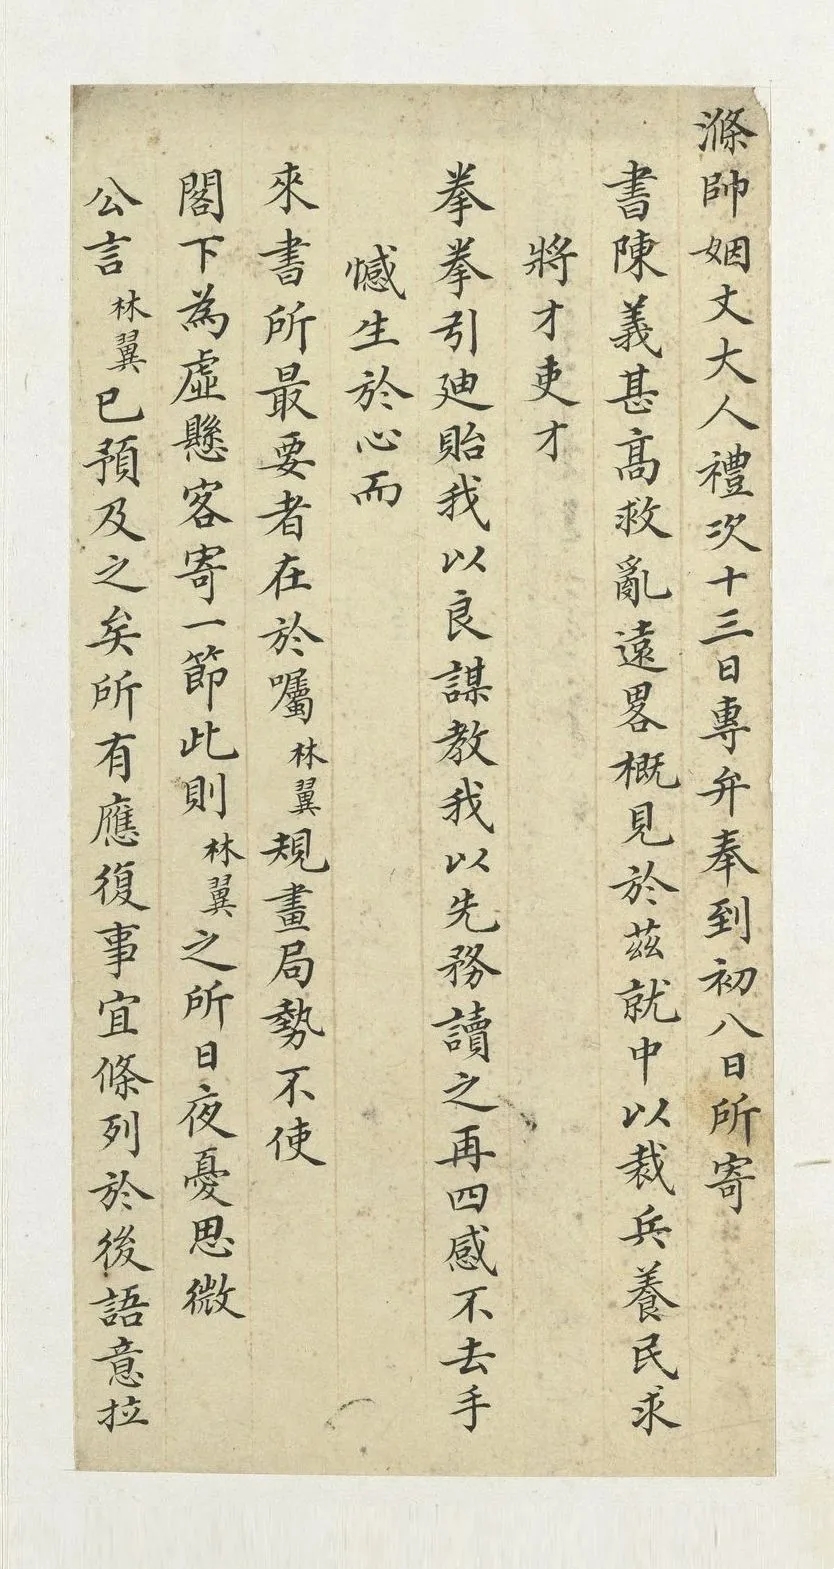 滌帥姻丈大人禮次十三日專弁奉到初八日所寄
書陳義甚高救亂遠畧概見於茲就中以裁兵養民求
將才吏才
拳拳引廸貽我以良謀教我以先務讀之再四感不去手
憾生於心而
來書所最要者在於囑林翼規畫局勢不使
閣下為虛懸客寄一節此則林翼之所日夜憂思微
公言林翼已預及之矣所有應復事宜條列於後語意拉